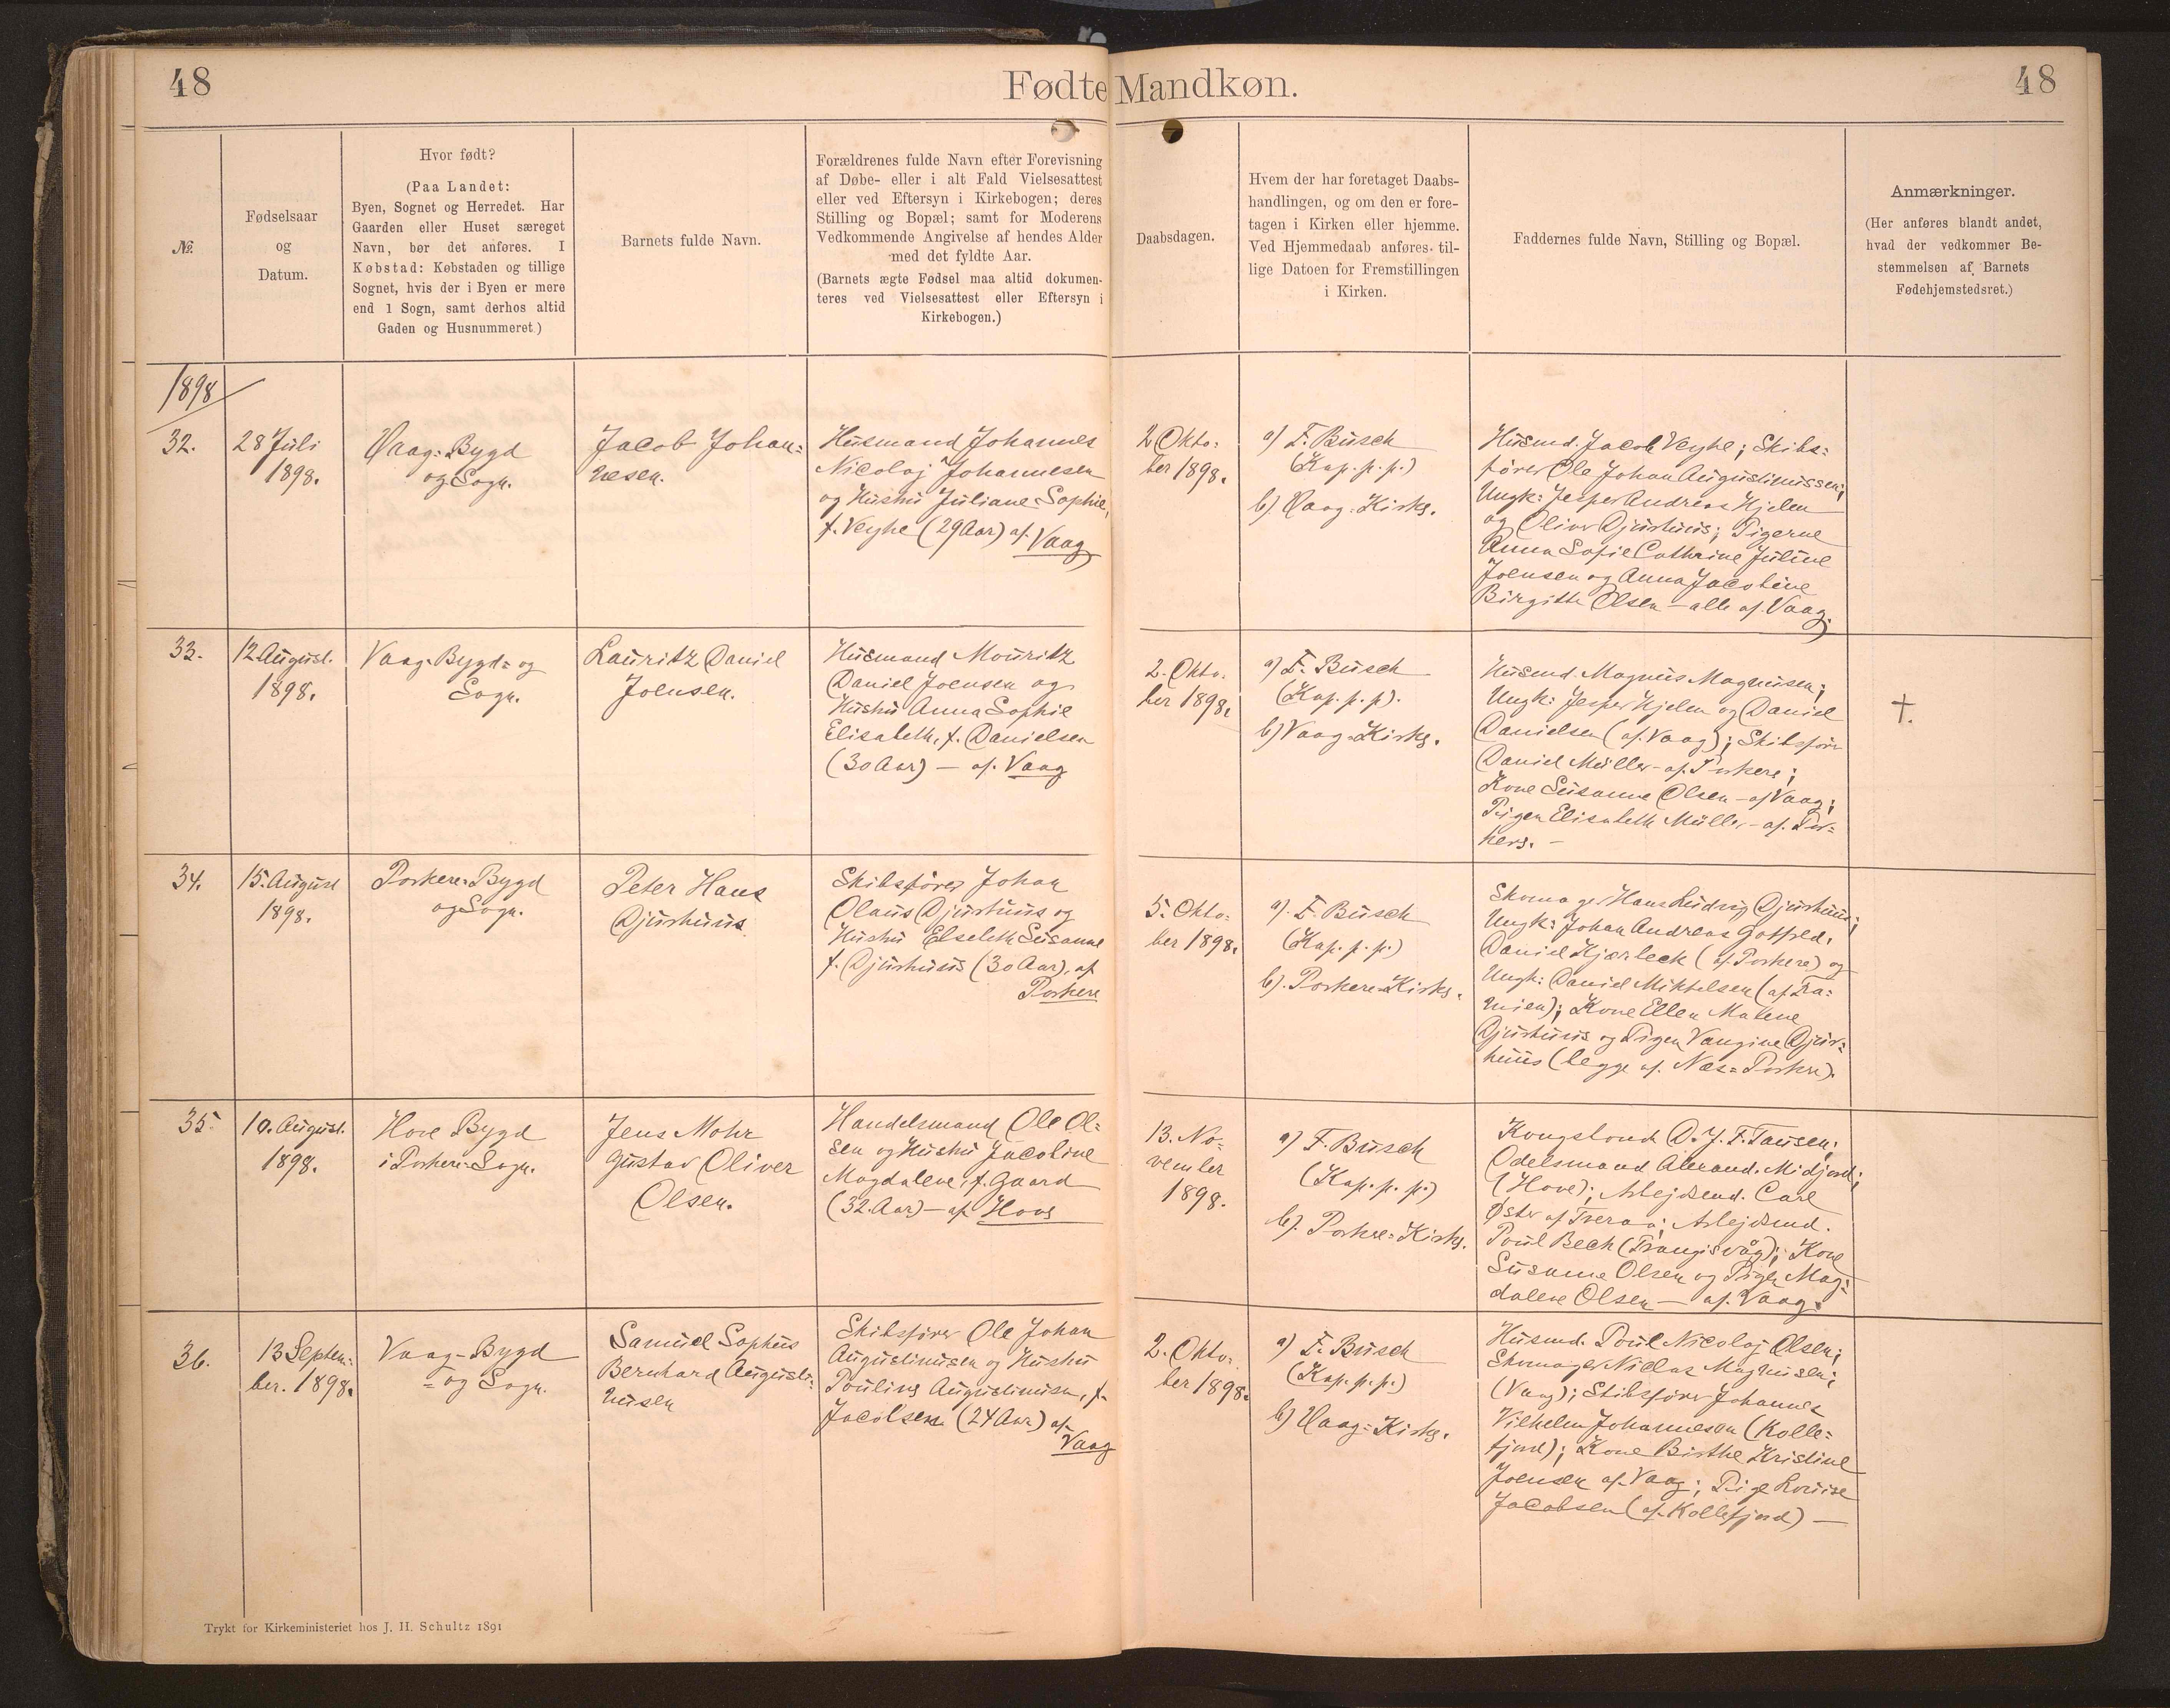 48
Fødte Mandkøn.
48
№.
Fødselsaar
og
Datum.
Hvor født?
(Paa Landet:
Byen, Sognet og Herredet. Har
Gaarden eller Huset særeget
Navn, bør det anføres. I
Købstad: Købstaden og tillige
Sognet, hvis der i Byen er mere
end 1 Sogn, samt derhos altid
Gaden og Husnummeret)
Barnets fulde Navn.
Forældrenes fulde Navn efter Forevisning
af Døbe- eller i alt Fald Vielsesattest
eller ved Eftersyn i Kirkebogen; deres
Stilling og Bopæl; samt for Moderens
Vedkommende Angivelse af hendes Alder
med det fyldte Aar.
(Barnets ægte Fødsel maa altid dokumen-
teres ved Vielsesattest eller Eftersyn i
Kirkebogen.)
Daabsdagen.
Hvem der har foretaget Daabs-
handlingen, og om den er fore-
tagen i Kirken eller hjemme.
Ved Hjemmedaab anføres til-
lige Datoen for Fremstillingen
i Kirken.
Faddernes fulde Navn, Stilling og Bopæl.
Anmærkninger.
(Her anføres blandt andet,
hvad der vedkommer Be-
stemmelsen af Barnets
Fødehjemstedsret.)
1898
32.
28 Juli
1898.
Vaag=Bygd
og Sogn.
Jacob Johan=
nesen.
Husmand Johannes
Nicolaj Johannesen
og Hustru Juliane Sophie,
f. Veyhe (29 Aar) af Vaag
2 Okto=
ber 1898.
a) F. Busch
(Kap. p. p.)
b) Vaag=Kirke.
Husmd. Jacob Veyhe; Skibs=
fører Ole Johan Augustinussen;
Ungk: Jesper Andreas Hjelm
og Oliver Djurhuus; Pigerne
Anna Sofie Cathrine Juline
Joensen og Anna Jacobine
Birgitte Olsen – alle af Vaag.
33.
12 August.
1898.
Vaag=Bygd= og
Sogn.
Lauritz Daniel
Joensen.
Husmand Mouritz
Daniel Joensen og
Hustru Anna Sophie
Elisabeth, f. Danielsen
(30 Aar) – af Vaag
2. Okto.
ber 1898.
a) F. Busch
(Kap. p. p).
b) Vaag=Kirke.
Husmd. Magnus Magnusen;
Ungk: Jesper Hjelm og Daniel
Danielsen (af Vaag); Skibsfører
Daniel Müller – af Porkere;
Kone Susanne Olsen – af Vaag;
Pigen Elisabeth Müller – af Por=
kere. –
†.
34.
15. August
1898.
Porkere=Bygd
og Sogn.
Peter Hans
Djurhuus
Skibsfører Johan
Olaus Djurhuus og
Hustru Elsebeth Susanne
f. Djurhuus (30 Aar), af
Porkere
5. Okto=
ber 1898.
a). F. Busch
(Kap. p. p.)
b). Porkere=Kirke.
Skomager Hans Ludvig Djurhuus;
Ungk: Johan Andreas Gotfred.
Daniel Kjærbeck (af Porkere) og
Ungk: Daniel Mikkelsen (af Fra=
mien); Kone Ellen Malene
Djurhuus og Pigen Vaugine Djur=
huus (begge af Næs=Porkere).
35.
10. August.
1898.
Hove Bygd
i Porkere=Sogn.
Jens Mohr
Gustav Oliver
Olsen.
Handelsmand Ole Ol=
sen og Hustru Jacobine
Magdalene, f. Gaard
(32. Aar) – af Hove
13. No=
vember
1898.
a) F. Busch
(Kap. p. p.)
b). Porkere=Kirke.
Kongsbond. D. J. F. Tausen;
Odelsmand Alexand. Midjord;
(Hove); Arbejdsmd. Carl
Øster af Tveraa; Arbejdsmd.
Poul Bech (Trangisvåg); Kone
Susanne Olsen og Pigen Mag=
dalene Olsen – af Vaag.
36.
13 Septem=
ber. 1898.
Vaag=Bygd
= og Sogn.
Samuel Sophus
Bernhard Augusti=
nusen
Skibsfører Ole Johan
Augustinusen og Hustru
Pouline Augustinusen, f.
Jacobsen (24 Aar) af
Vaag
2. Okto=
ber 1898.
a) F. Busch
(Kap. p. p.)
b) Vaag=Kirke.
Husmd. Poul Nicolaj Olsen;
Skomager Niclas Magnusen;
(Vaag); Skibsfører Johannes
Vilhelm Johannesen (Kolle=
fjord); Kone Birthe Kristine
Joensen af Vaag; Pige Louise
Jacobsen (af Kollefjord) –
Trykt for Kirkeministeriet hos J. H. Schultz 1891